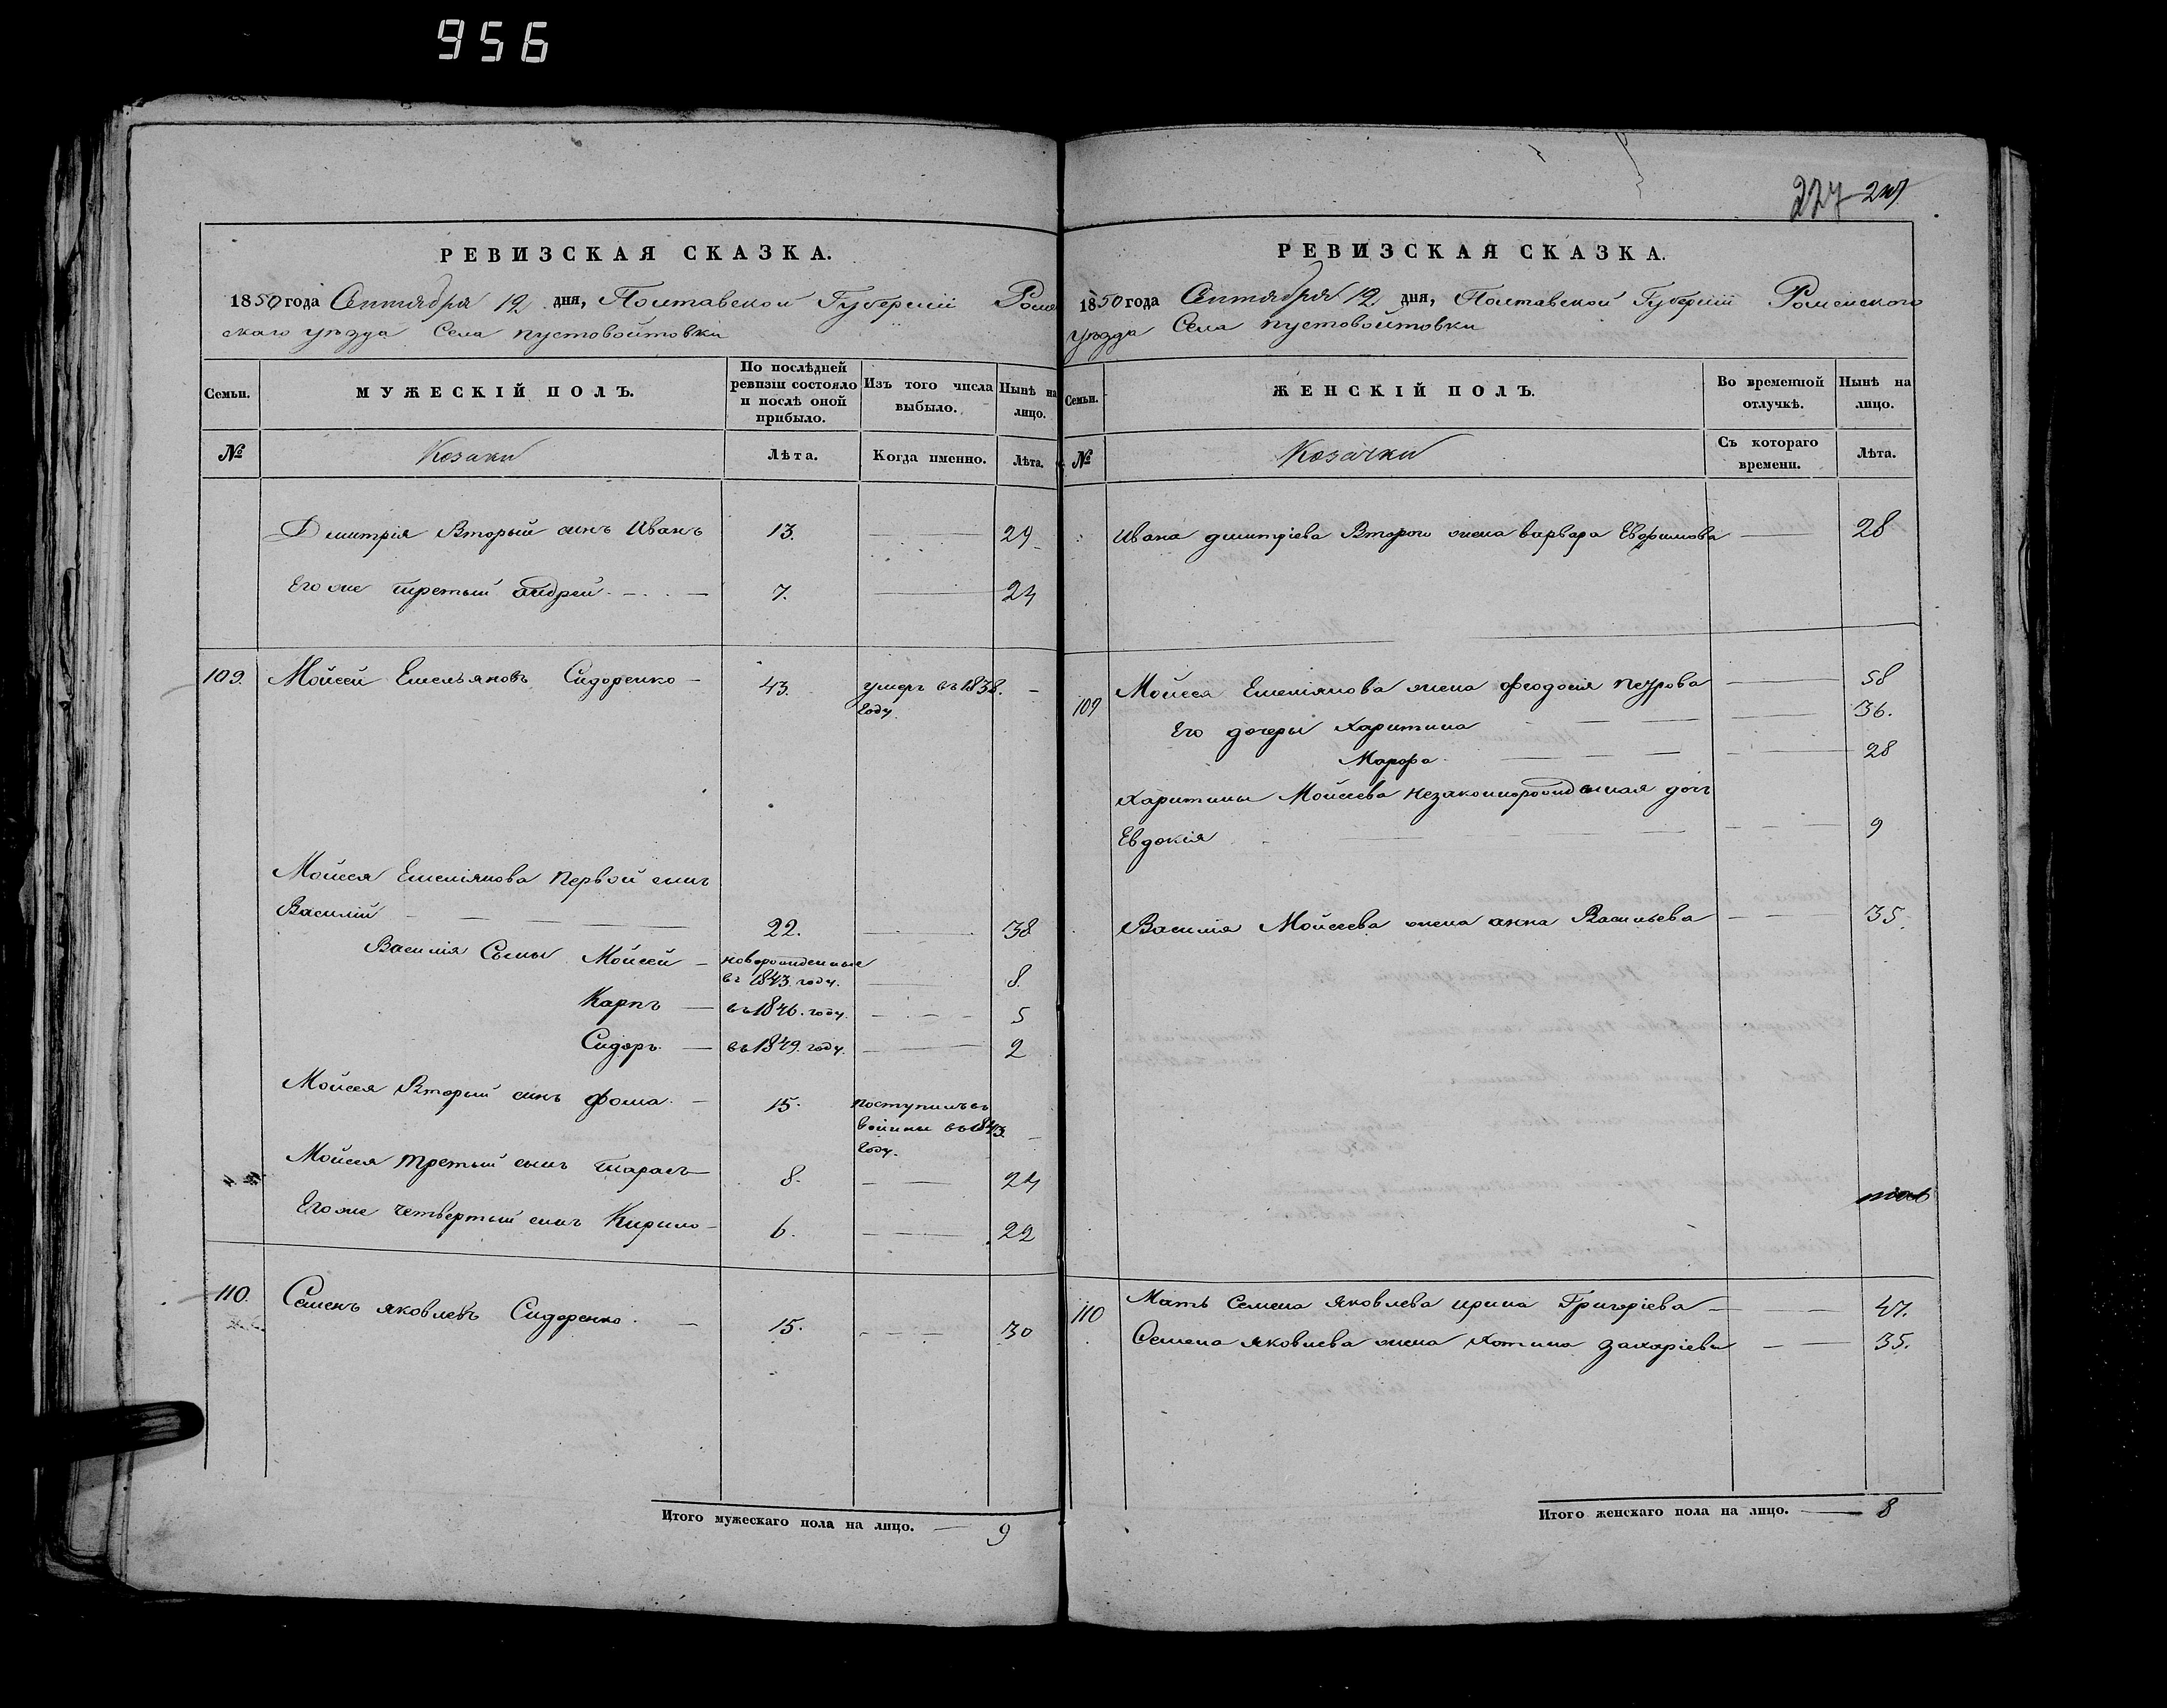 956
227 247
РЕВИЗСКАЯ СКАЗКА.
1850 года Сентября 12 дня, Полтавской Губерніи Ромен
скаго уезда Села пустовойтовки
Семьи.
МУЖЕСКІЙ ПОЛЪ.
По послѣдней ревизіи состояло и послѣ оной прибыло.
Изъ того числа выбыло.
Нынѣ на лицо.
№
Козаки
Лѣта.
Когда именно.
Лѣта.
Дмитрія Вторый синъ Иванъ 13. 29
Его же третый андрей 7. 23
109. Мойсей Емельяновъ Сидоренко 43. умеръ въ 1838. году.
Мойсея Емеліянова первой синъ
Василій 22. 38
Василія Сыны Мойсей новорожденные въ 1843. году. 8.
Карпъ въ 1846. году. 5
Сидоръ въ 1849. году. 2
Мойсея Вторый синъ фома 15. поступилъ въ
воины въ 1843.
году.
Мойсея третый сынъ тарасъ 8. 24
Его же четвертый сынъ Кирило 6. 22
110. Семенъ яковлевъ Сидоренко 15. 30
Итого мужескаго пола на лицо. 9
РЕВИЗСКАЯ СКАЗКА.
1850 года Сентября 12 дня, Полтавской Губерніи Роменского
уезда Села пустовойтовки
Семьи.
ЖЕНСКІЙ ПОЛЪ.
Во временной отлучкѣ.
Нынѣ на лицо.
№
Козачки
Съ котораго времени.
Лѣта.
Ивана дмитріева Второго жена варвара Евфимова 28
109 Мойсея Емеліянова жена феодосія петрова 58
Его дочеры харитина 36.
Марфа 28
харитины Мойсеева незаконнорожденная дочь
Евдокія 9
Василія Мойсеева жена анна Васильева 35.
110 Мать Семена яковлева ирина Григоріева 47.
Семена яковлева жена хотина захаріева 35.
Итого женскаго пола на лицо. 8